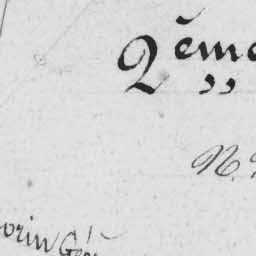 2ème
N.
orin Géo